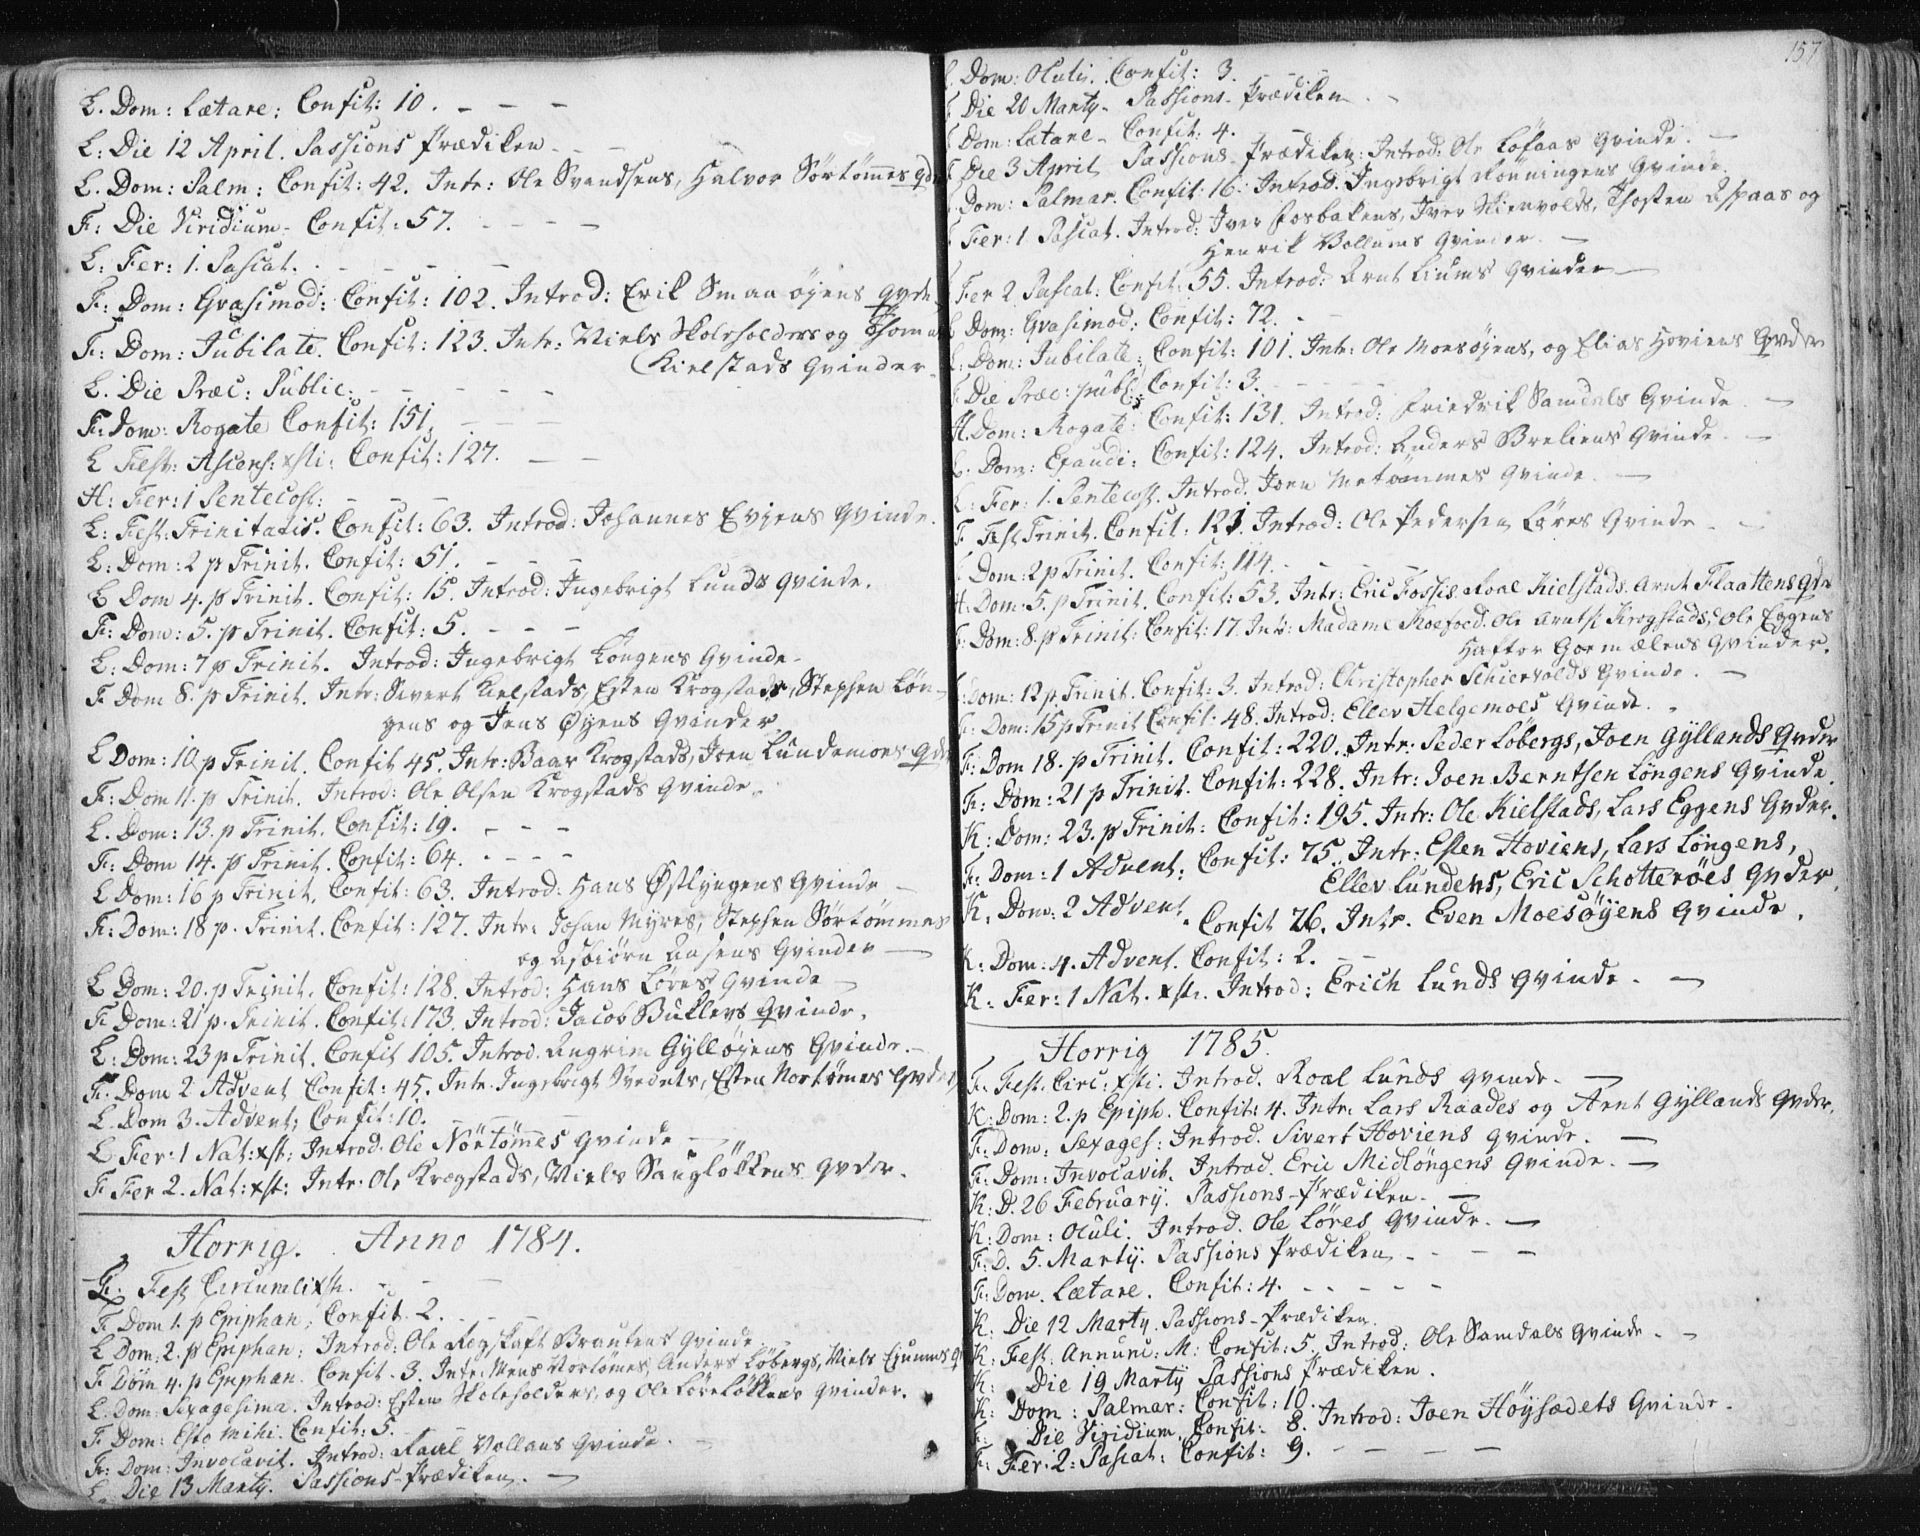 L. Dom: Lætare: Confit: 10. - - -
L: Die 12 April. Passions Prædiken - - -
L. Dom: Palm: Confit: 42. Intr: Ole Svendsens, Halvor Sörtömmes
F: Die Viridium - Confit: 57. - - - -
L: Fer: 1. Pascat. - - - - -
F: Dom: Qvasimod: Confit: 102. Introd: Erik Smaaöyens Qvde
F: Dom: Jubilate. Confit: 123. Intr: Niels Skoleholders og Thomas
Kielstads Qvinder.
L. Die Præc: Public: - - - - -
F: Dom: Rogate Confit: 151. - - -
L Fest: Ascens: xsti: Confit: 127. - -
H: Fer: 1 Pentecost: - - - -
L: Fest: Trinitatis. Confit: 63. Introd: Johannes Evjens Qvinde.
L: Dom: 2 p Trinit. Confit: 51. - - -
L Dom 4. p Trinit. Confit: 15. Introd: Ingebrigt Lunds Qvinde.
F: Dom: 5. p Trinit. Confit: 5. - - -
L: Dom: 7 p Trinit. Introd: Ingebrigt Löngens Qvinde -
F Dom 8. p Trinit. Intr: Sivert Kielstads, Esten Krogstads, Stephen Lön-
gens og Jens Øyens Qvinder
L Dom: 10 p Trinit. Confit 45. Intr: Baar Krogstads, Joen Lundemoes
F: Dom 11. p Trinit. Introd: Ole Olsen Krogstads Qvinde.
L. Dom: 13. p Trinit. Confit: 19. - - -
F: Dom 14. p Trinit. Confit: 64. - - - -
L Dom: 16 p Trinit. Confit: 63. Introd: Hans Østlyngens Qvinde -
F: Dom: 18 p. Trinit. Confit: 127. Intr: Johan Myres, Stephen Sörtömmes
og Asbiörn Aasens Qvinder -
L Dom: 20. p Trinit. Confit: 128. Introd: Hans Löres Qvinde -
F. Dom: 21 p. Trinit. Confit: 173. Introd: Jacob Buklers Qvinde.
L: Dom: 23 p Trinit. Confit 105. Introd. Angrim Gyllöyens Qvinde. -
F: Dom 2 Advent Confit: 45. Intr. Ingebrigt Svedets, Esten Nortömes Qvder
L. Dom 3. Advent; Confit: 10. - - -
L Fer: 1 Nat: xst: Introd. Ole Nörtömes Qvinde -
F Fer 2. Nat: xst: Intr: Ole Krogstads, Niels Saugløkkens Qvder.
Horrig. Anno 1784.
F: Fest Circumcis xsti. - - -
F Dom 1. p Epiphan; Confit. 2. - -
L Dom: 2. p Epiphan: Introd: Ole Brautens Qvinde
F Dom 4. p Epiphan. Confit. 3. Intr: Mens Nortömes, Anders Löbergs, Niels
L: Dom: Sexagesima. Introd: Esten Skoleholders, og Ole Löreløkkens Qvinder.
F. Dom: Esto mihi. Confit: 5.
F: Dom: Invocavit. Introd: Raael Vollans Qvinde. -
L. Die 13 Marty. Passions-Prædiken. -
157
Dom: Oculi. Confit: 3.
Die 20 Marty - Passions - Prædiken - -
Dom: Lætare - Confit: 4.
Die 3 April Passions - Prædiken: Introd: Ole Löfaas Qvinde. -
Dom: Palmar. Confit: 16. Introd: Ingebrigt Rönningens Qvinde.
Fer: 1 Pascat. Introd: Iver Fosbakens, Iver Skiervolds, Thosten Aspaas og
Henrik Vollums Qvinder. -
Fer 2 Pascat: Confit: 55. Introd: Arnt Liums Qvinder -
Dom: Qvasimod: Confit: 72. -
L: Dom: Jubilate: Confit: 101. Intr: Ole Moesöyens, og Elias Hoviens Qvder
Die Præc: publ: Confit: 3. - - - -
H. Dom: Rogate: Confit: 131. Introd: Friedrik Samdals Qvinde. -
L. Dom: Exaudi: Confit: 124. Introd: Anders Breliens Qvinde. -
L: Fer: 1. Pentecost. Introd. Joen Qvinde. -
F Fest Trinit. Confit. 121. Introd: Ole Pedersen Löres Qvinde - -
Dom: 2 p Trinit. Confit: 114. - - - -
H: Dom: 5. p Trinit. Confit: 53. Intr: Eric Fossis. Roal Kielstads. Arnt Flaattens Qvdr
F: Dom: 8. p Trinit: Confit: 17. Intr: Madame Koefoed. Ole Arntsz Krogstads, Ole Eggens
Haftor Goemælens Qvinder.
Dom: 12 p. Trinit. Confit: 3. Introd: Christopher Schiervolds Qvinde. -
Dom: 15 p Trinit Confit: 48. Introd: Ellev Helgemoes Qvinde. -
F: Dom 18. p Trinit. Confit: 220. Intr: Peder Löbergs, Joen Gyllands Qvder
F: Dom: 21 p Trinit. Confit: 228. Intr: Joen Berntsen Löngens Qvinde.
K: Dom: 23. p Trinit: Confit: 195. Intr: Ole Kielstads, Lars Eggens Qvder.
F: Dom: 1 Advent: Confit: 75. Intr: Esten Hoviens, Lars Löngens,
Ellev Lundens, Eric Schotteröes Qvder.
K: Dom: 2 Advent. Confit 76. Intr. Even Moesöyens Qvinde.
K: Dom: 4. Advent. Confit: 2. - -
K: Fer: 1 Nat. xsti. Introd: Erich Lunds Qvinde. -
Horrig 1785.
F. Fest. Circ: xsti. Introd. Roal Lunds Qvinde. -
K: Dom: 2. p Epiph. Confit: 4. Intr: Lars Raades og Arnt Gyllands Qvder.
F: Dom: Sexages: Introd. Sivert Hoviens Qvinde. -
F: Dom: Invocavit. Introd. Eric Midlöngens Qvinde. -
K: D. 26 February. Passions-Prædiken - -
K: Dom: Oculi. Introd. Ole Löres Qvinde. -
F: D. 5. Marty. Passions Prædiken - - - -
F: Dom. Lætare. Confit: 4. - - - - -
K: Die 12 Marty. Passions-Prædiken.
K: Fest. Annunc: M: Confit: 5. Introd: Ole Samdals Qvinde. -
K: Die 19 Marty Passions Prædiken.
K: Dom: Palmar: Confit: 10.
F: Die Viridium. Confit: 8. Introd: Joen Höysædets Qvinde.
F: Fer: 2: Pascat: Confit: 9. - - - -